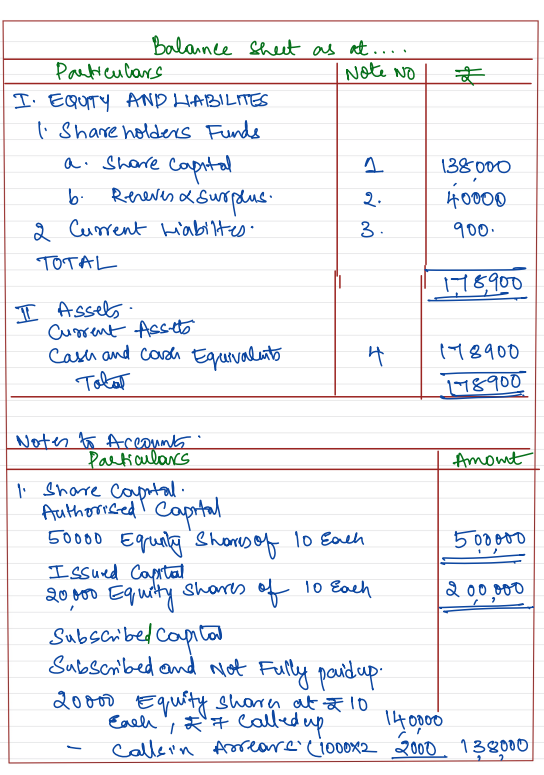 Balance Sheet as at....
Particulars Note No ₹
I. EQUITY AND LIABILITES
1. Shareholders Funds
a. Share Capital 1 138,000
b. Reneves & Surplus. 2. 40000
2 Current Liabilites. 3. 900.
TOTAL
1,78,900
II Assets.
Current Assets
Cash and Cash Equivalents 4 178900
Total 178900
Notes to Accounts.
Particulars Amount
1. Share Capital.
Authorised Capital
50000 Equity Shares of 10 Each 500,000
Issued Capital
20,000 Equity Shares of 10 Each 2,00,000
Subscribed Capital
Subscribed and Not Fully paidup.
20000 Equity Shares at ₹10
Each, ₹7 Calledup 140000
- Calls in Arrears (1000X2 2000 1,38,000